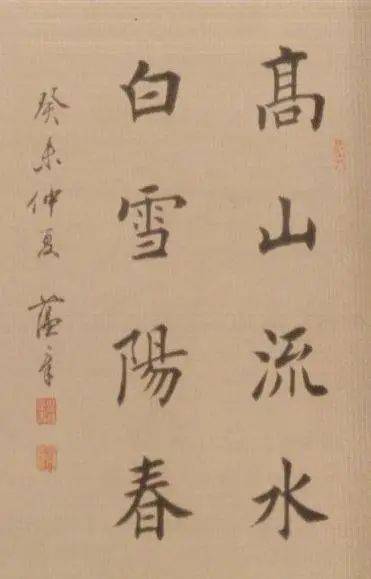 高山流水
白雪陽春
癸未仲夏 蘊章